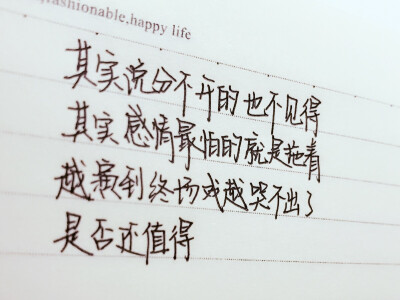 fashionable,happy life
其实说分不开的也不见得
其实感情最怕的就是拖着
越演到终场戏越哭不出了
是否还值得